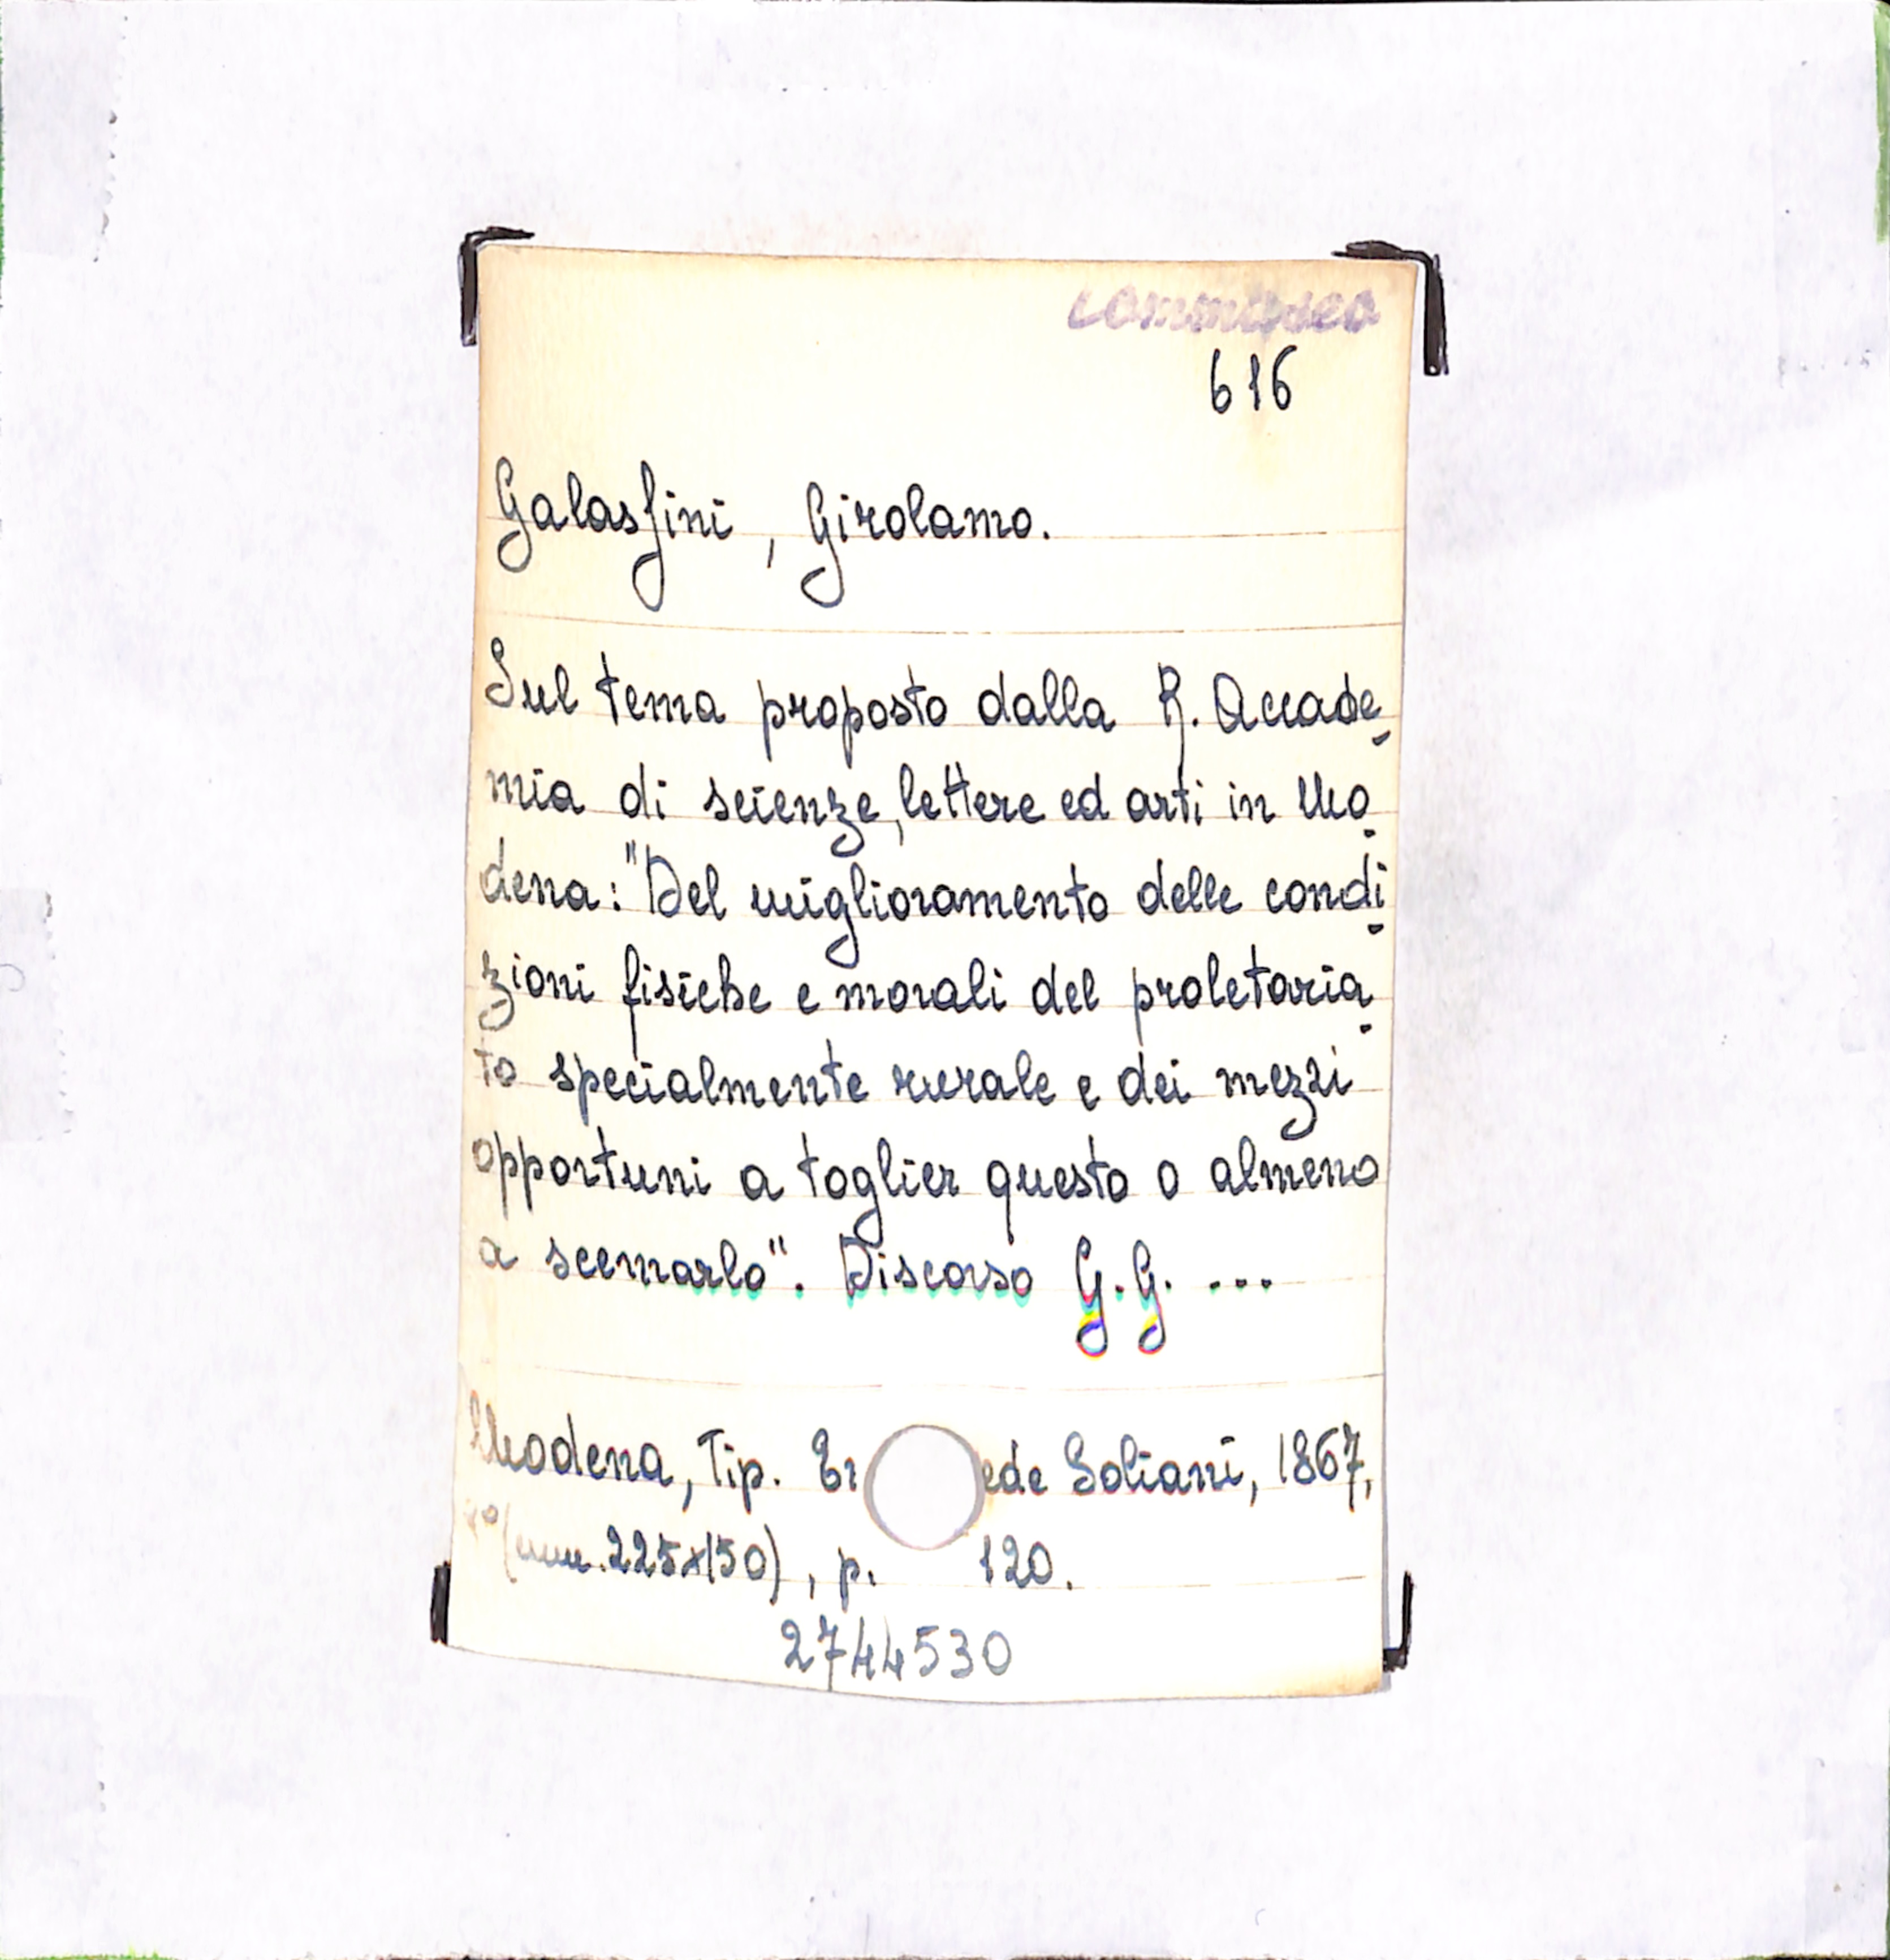 616
Galassini, Girolamo.
Sul tema proposto dalla R. Accade-
mia di scienze, lettere ed arti in Mo-
dena: "Del miglioramento delle condi-
zioni fisiche e morali del proletaria-
to specialmente rurale e dei mezzi
opportuni a toglier questo o almeno
a scemarlo". Discorso G.G. ...
Modena, Tip. Er ede Soliani, 1867,
(mm. 225x150), p. 120.
2744530